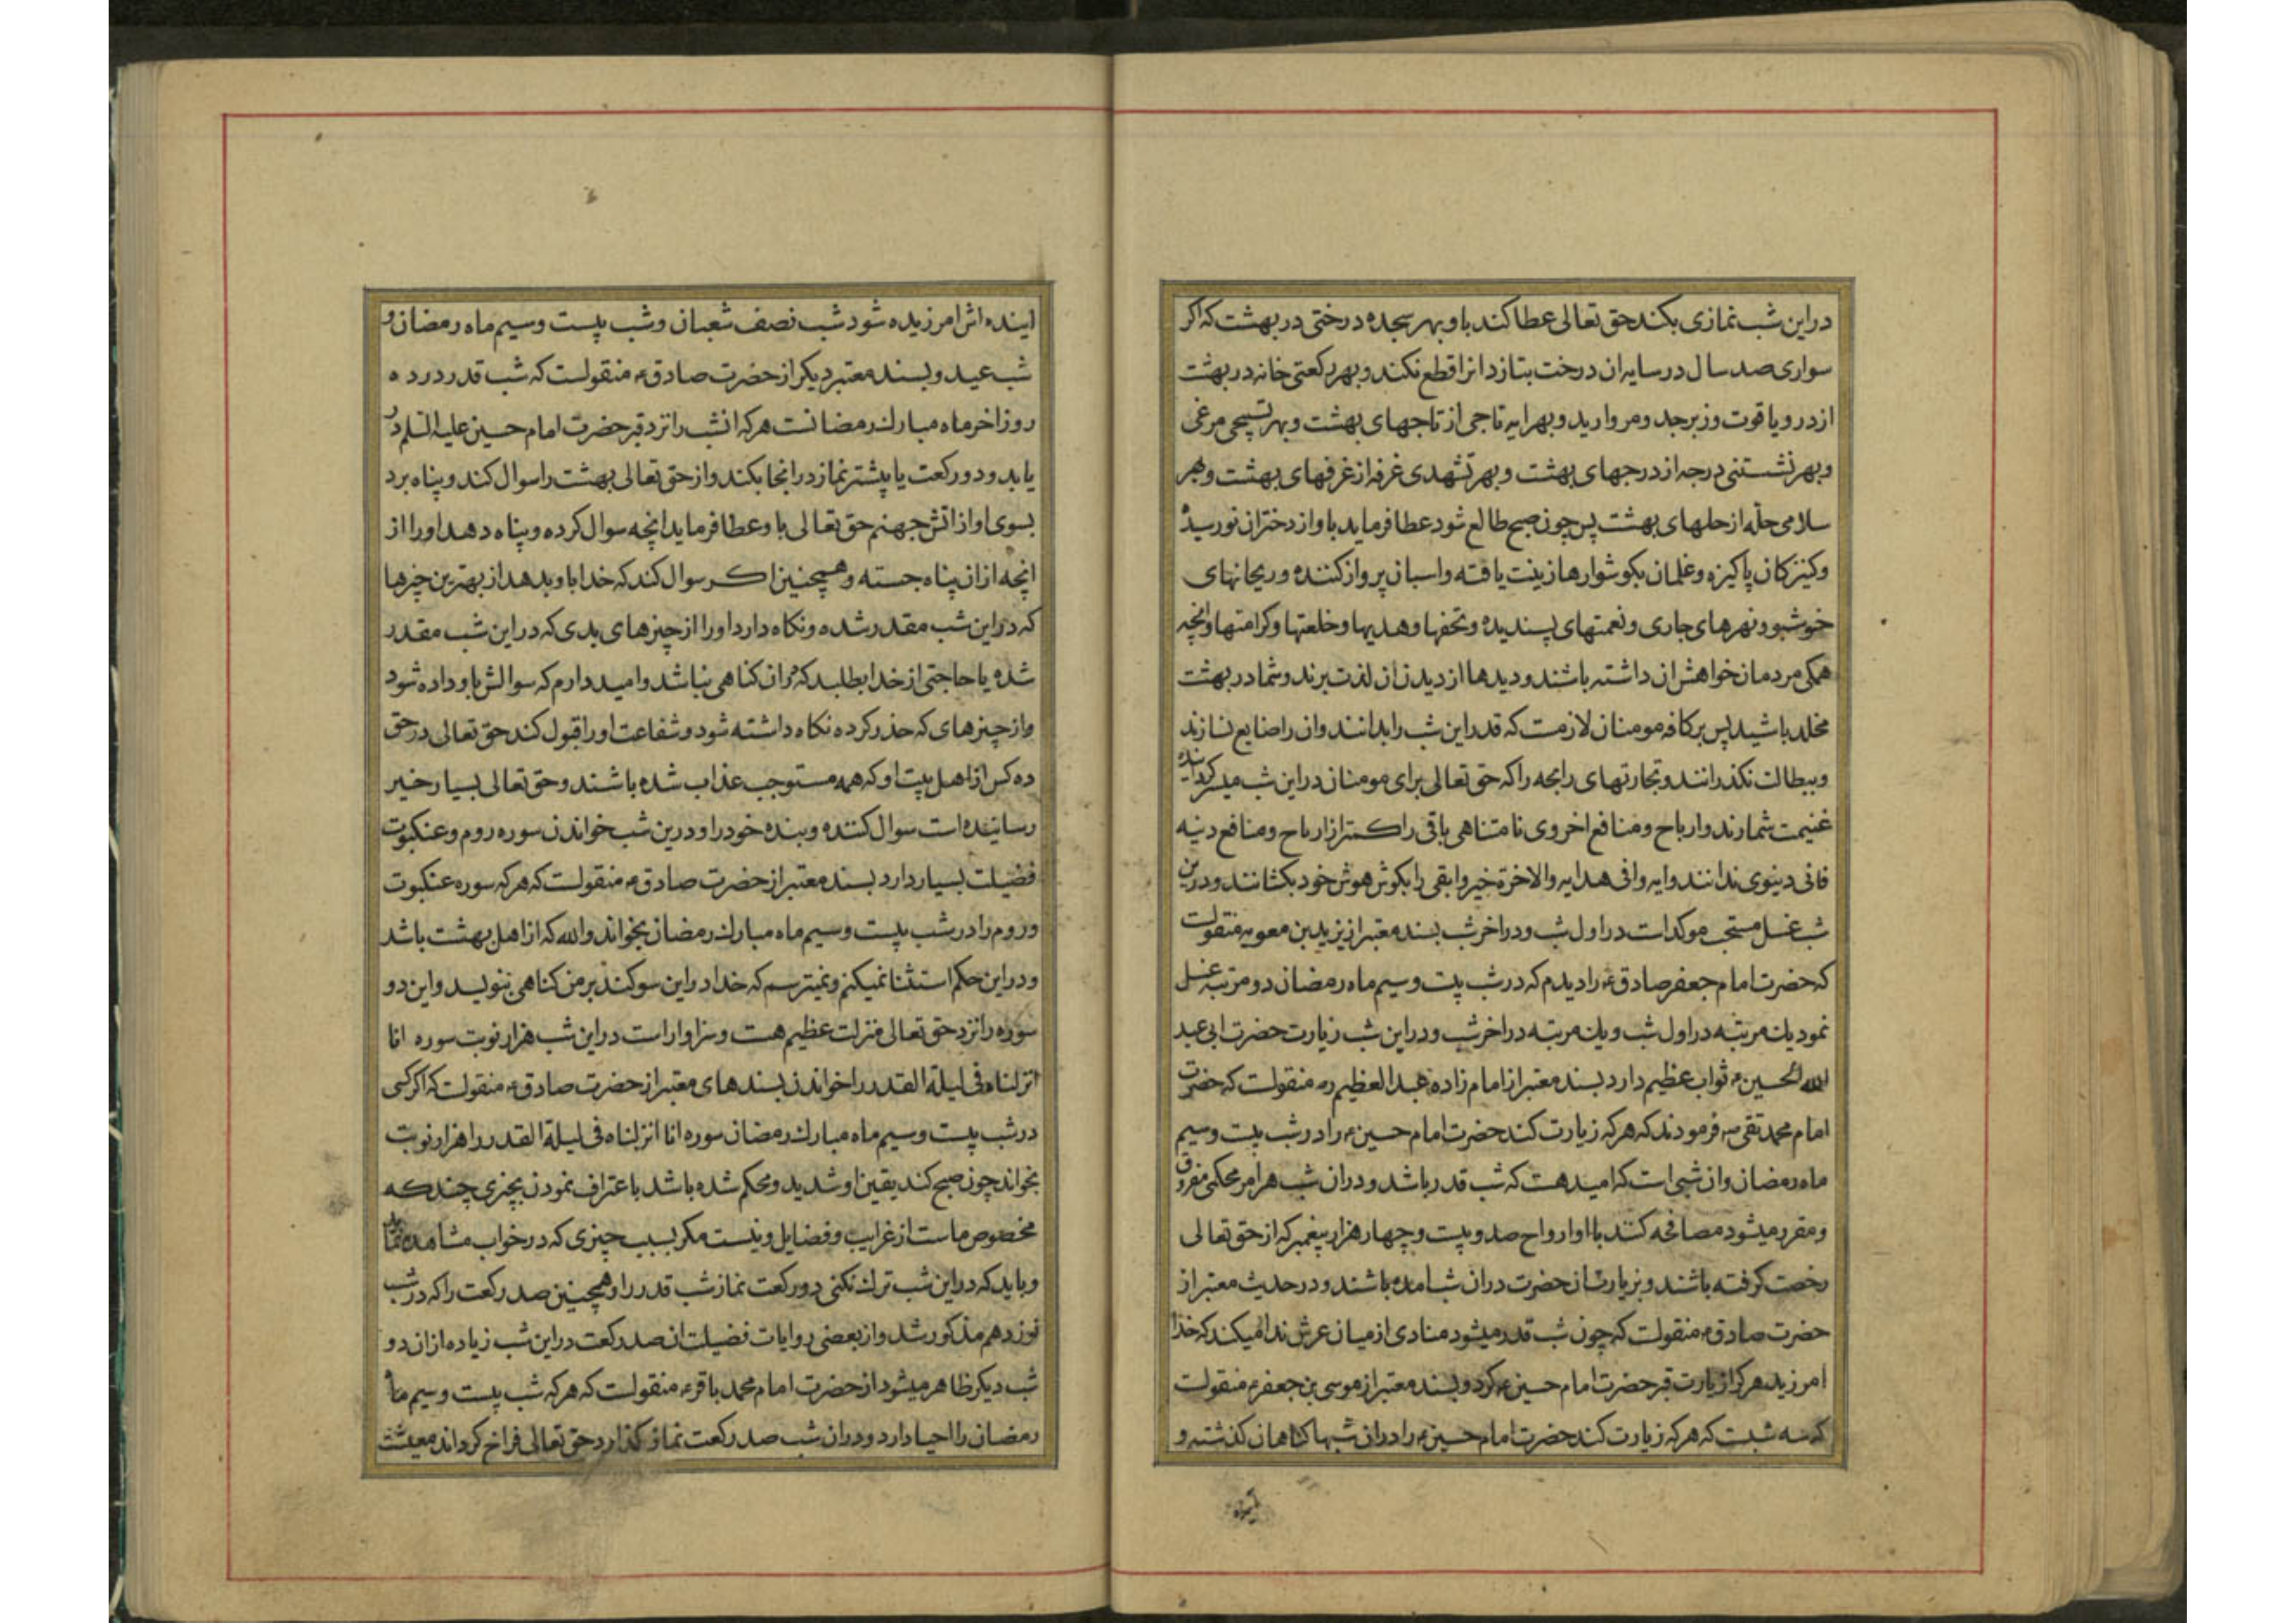 دراین شب نمازی بکند حق تعالی عطا کند باو بهر سجده درختی در بهشت که اکر
سواری صد سال در سایه ان درخت بتازد انرا قطع نکند و بهر رکعتی خانه در بهشت
از در و یاقوت و زبرجد و مروارید و بهر ایه تاجی از تاجهای بهشت و بهر تسبیحی مرغی
و بهر نشستنی درجه از درجهای بهشت و بهر تشهدی غرفه از غرفهای بهشت و بهر
سلامی حلّه از حلهای بهشت پس چون صبح طالع شود عطا فرماید باو از دختران نورسیده
و کنیزکان پاکیزه و غلمان بکوشوارها زینت یافته و اسبان پرواز کننده و ریحانهای
خوشبو و نهرهای جاری و نعمتهای پسندیده و تحفها و هدیها و خلعتها و کرامتها و انچه
همکی مردمان خواهش ان داشته باشند و دیدها از دیدن ان لذت برند و شما در بهشت
مخلد باشید پس بر کافه مومنان لازمست که قدر این شب را بدانند و ان را ضایع نسازند
و ببطالت نکذرانند و تجارتهای رابحه را که حق تعالی برای مومنان در این شب میسر کردانیده
غنیمت شمارند و ارباح و منافع اخروی نامتناهی باقی را کمتر از ارباح و منافع دنیه
فانی دینوی ندانند و ایه وافی هدایه والاخرة خیر وابقی را بکوش هوش خود بکشانند و درین
شب غسل مستحب موکد است در اول شب و در اخر شب بسند معتبر از یزید بن معویه منقولست
که حضرت امام جعفر صادق ع را دیدم که در شب بیست و سیم ماه رمضان دو مرتبه غسل
نمود یك مرتبه در اول شب و یك مرتبه در اخر شب و در این شب زیارت حضرت ابی عبد
الله الحسین ع ثواب عظیم دارد بسند معتبر از امام زاده عبد العظیم ره منقولست که حضرت
امام محمد تقی ع فرمودند که هر که زیارت کند حضرت امام حسین ع را در شب بیست و سیم
ماه رمضان وان شبی است که امید هست که شب قدر باشد و در ان شب هر امر محکمی مفروق
و مقرر میشود مصافحه کنند با او ارواح صد و بیست و چهار هزار پیغمبر که از حق تعالی
رخصت کرفته باشند و بزیارت ان حضرت در ان شب امده باشند و در حدیث معتبر از
حضرت صادق ع منقولست که چون شب قدر میشود منادی از میان عرش ندا میکند که خدا
امرزید هر که از زیارت قبر حضرت امام حسین ع کرد و بسند معتبر از موسی بن جعفر ع منقولست
که سه شبست که هر که زیارت کند حضرت امام حسین ع را در ان شبها کناهان کذشته و
اینده
اینده اش امرزیده شود شب نصف شعبان و شب بیست و سیم ماه رمضان و
شب عید و بسند معتبر دیکر از حضرت صادق ع منقولست که شب قدر در ده
روز اخر ماه مبارك رمضانست هر که انشب را نزد قبر حضرت امام حسین علیه السلم در
یابد و دو رکعت یا پیشتر نماز در انجا بکند و از حق تعالی بهشت را سوال کند و پناه برد
بسوی او از اتش جهنم حق تعالی باو عطا فرماید انچه سوال کرده و پناه دهد او را از
انچه از ان پناه جسته و همچنین اکر سوال کند که خدا باو بدهد از بهترین چیزها
که در این شب مقدر شده و نکاه دارد او را از چیزهای بدی که در این شب مقدر
شده یا حاجتی از خدا بطلبد که در ان کناهی نباشد و امید دارم که سوالش باو داده شود
و از چیزهای که حذر کرده نکاه داشته شود و شفاعت او را قبول کند حق تعالی در حق
ده کس از اهل بیت او که همه مستوجب عذاب شده باشند و حق تعالی بسیار خیر
رساننده است سوال کننده و بنده خود را و درین شب خواندن سوره روم و عنکبوت
فضیلت بسیار دارد بسند معتبر از حضرت صادق ع منقولست که هر که سوره عنکبوت
و روم را در شب بیست و سیم ماه مبارك رمضان بخواند والله که از اهل بهشت باشد
و در این حکم استثنا نمیکنم و نمیترسم که خدا در این سوکند بر من کناهی بنویسد و این دو
سوره را نزد حق تعالی منزلت عظیم هست و سزاوار است در این شب هزار نوبت سوره انا
انزلناه فی لیلة القدر را خواندن بسندهای معتبر از حضرت صادق ع منقولست که اکر کسی
در شب بیست و سیم ماه مبارك رمضان سوره انا انزلناه فی لیلة القدر را هزار نوبت
بخواند چون صبح کند یقین او شدید و محکم شده باشد باعتراف نمودن بچیزی چند که
مخصوص ماست از غرایب و فضایل و نیست مکر بسبب چیزی که در خواب مشاهده نماید
و باید که در این شب ترك نکنی دو رکعت نماز شب قدر را و همچنین صد رکعت را که در شب
نوزدهم مذکور شد و از بعضی روایات فضیلت ان صد رکعت در این شب زیاده از ان دو
شب دیکر ظاهر میشود از حضرت امام محمد باقر ع منقولست که هر که شب بیست و سیم ماه
رمضان را احیا دارد و در ان شب صد رکعت نماز کذارد حق تعالی فراخ کرداند معیشت